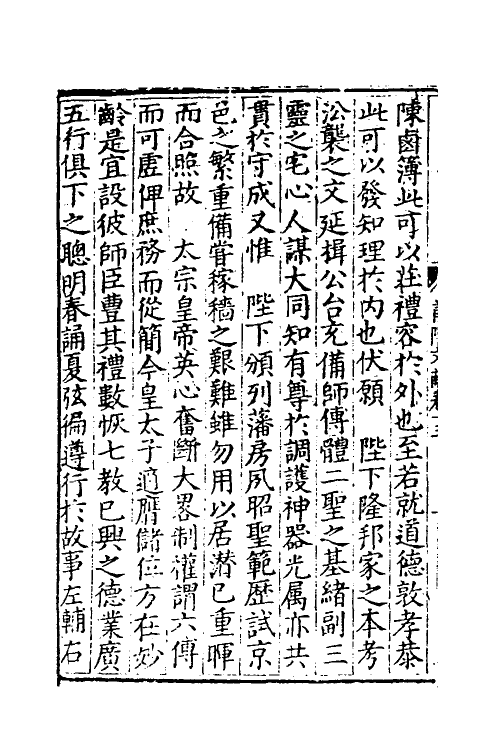 陳鹵簿此可以莊禮容於外也至若就道德敦孝恭
此可以發知理於內也伏願　陛下隆邦家之本考
㳂襲之文延揖公台充備師傅體二聖之基緒副三
靈之宅心人謀大同知有尊於調護神器光属亦共
貫於守成又惟　陛下頒列藩房夙昭聖範歷試京
邑之繁重備甞稼穡之艱難雖勿用以居潛已重暉
而合照故　太宗皇帝英心奮斷大畧制權謂六傅
而可虛俾庶務而從簡今皇太子適膺儲位方在妙
齡是宜設彼師臣豊其禮數恢七教已興之德業廣
五行俱下之聰明春誦夏弦徧遵行於故事左輔右